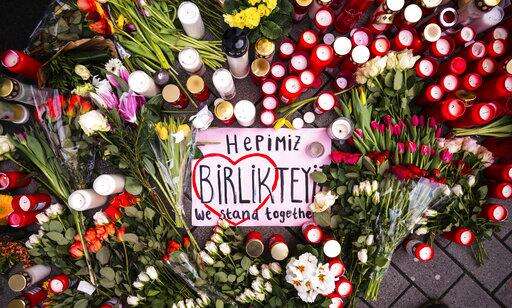 HEPiMiZ
BiRLiKTEYiZ
We stand together